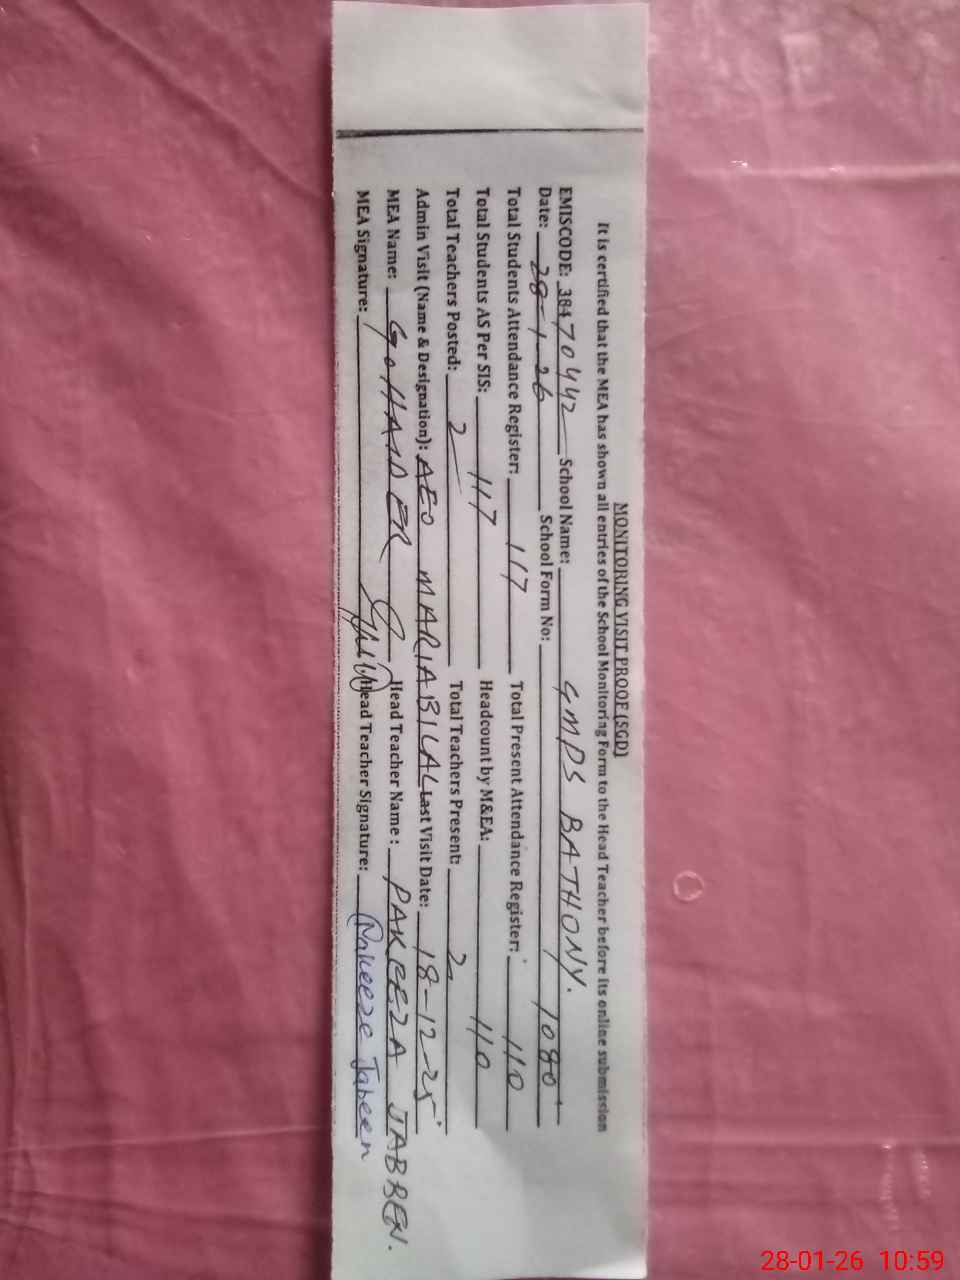 MONITORING VISIT PROOF (SGD)
It is certified that the MEA has shown all entries of the School Monitoring Form to the Head Teacher before its online submission
EMISCODE: 38470442 School Name: GMPS BATHONY.
Date: 28-1-26 School Form No: 1080
Total Students Attendance Register: 117 Total Present Attendance Register: 110
Total Students AS Per SIS: 117 Headcount by M&EA: 110
Total Teachers Posted: 2 Total Teachers Present: 2
Admin Visit (Name & Designation): AEO MARIA BILAL Last Visit Date: 18-12-25
MEA Name: G. HAIDER Head Teacher Name: PAKEEZA JABREN.
MEA Signature: Head Teacher Signature: Pakeeze Jabeen
28-01-26 10:59